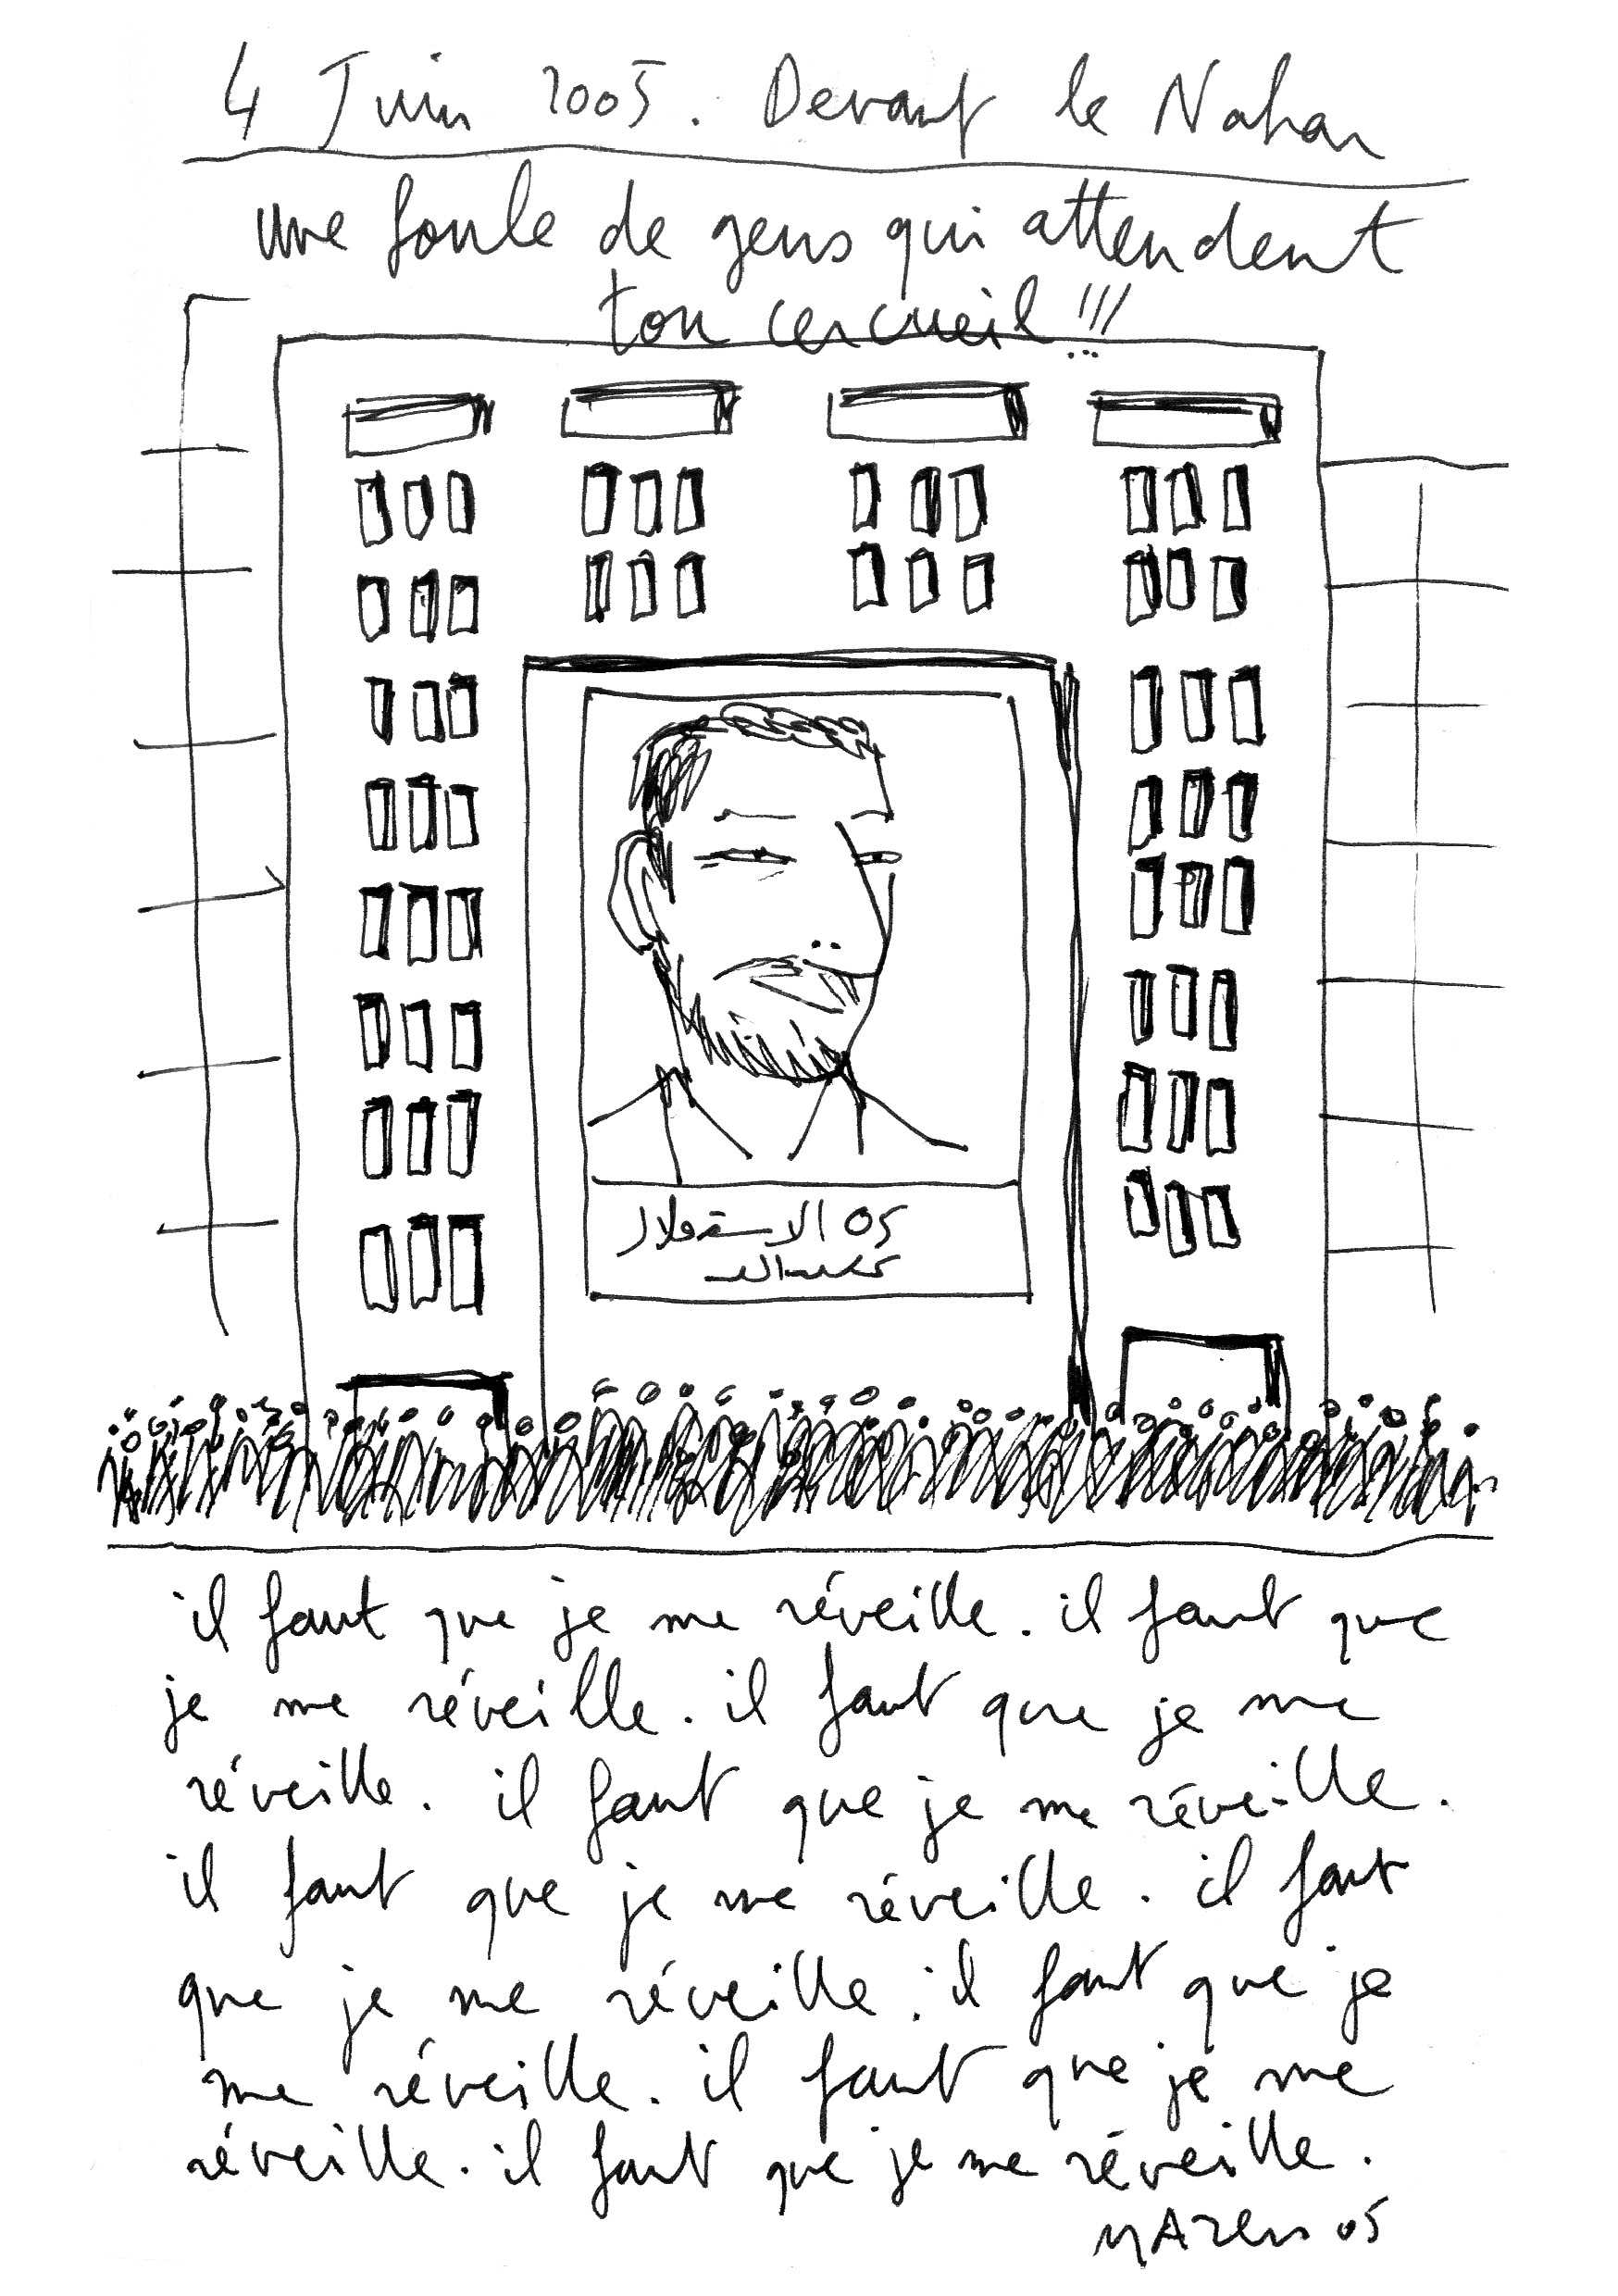 4 Juin 2005. Devant le Nahar
une foule de gens qui attendent
ton cercueil !!!
الاستقلال 05
il faut que je me réveille. il faut que
je me réveille. il faut que je me
réveille. il faut que je me réveille.
il faut que je me réveille. il faut
que je me réveille. il faut que je
me réveille. il faut que je me
réveille. il faut que je me réveille.
MAZen 05